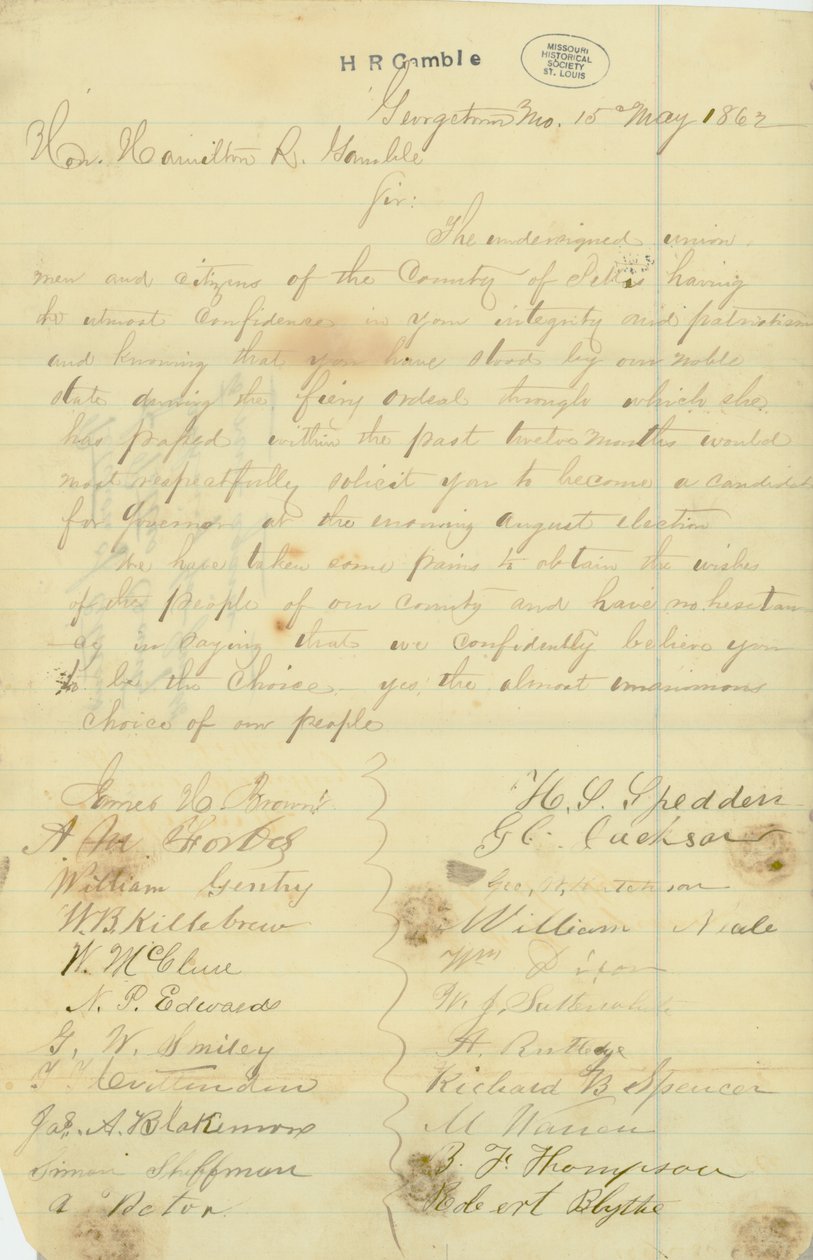 H R Gamble
MISSOURI
HISTORICAL
SOCIETY
ST. LOUIS
Georgetown Mo. 15 May 1862
Hon. Hamilton R. Gamble
Sir:
The undersigned union
men and citizens of the County of Pettis having
the utmost confidence in your integrity and patriotism
and knowing that you have stood by our noble
state during the fiery ordeal through which she
has passed within the past twelve months would
most respectfully solicit you to become a candidate
for Governor at the ensuing august election
We have taken some pains to obtain the wishes
of the people of our county and have no hesitan
-cy in saying that we confidently believe you
to be the choice yes, the almost unanimous
choice of our people
James H. Brown
A M Forbes
William Gentry
W. B. Killebrew
W. McClure
N. P. Edwards
G. W. Smiley
T. T. Crittenden
Jas. A. Blakemore
Simon Shiffman
H. S. Spedden
G C. Cuckson
Geo. Hutchison
William Neale
Wm Dixon
W. J.
A. Rutledge
Richard B Spencer
M
B. F. Thompson
Robert Blythe